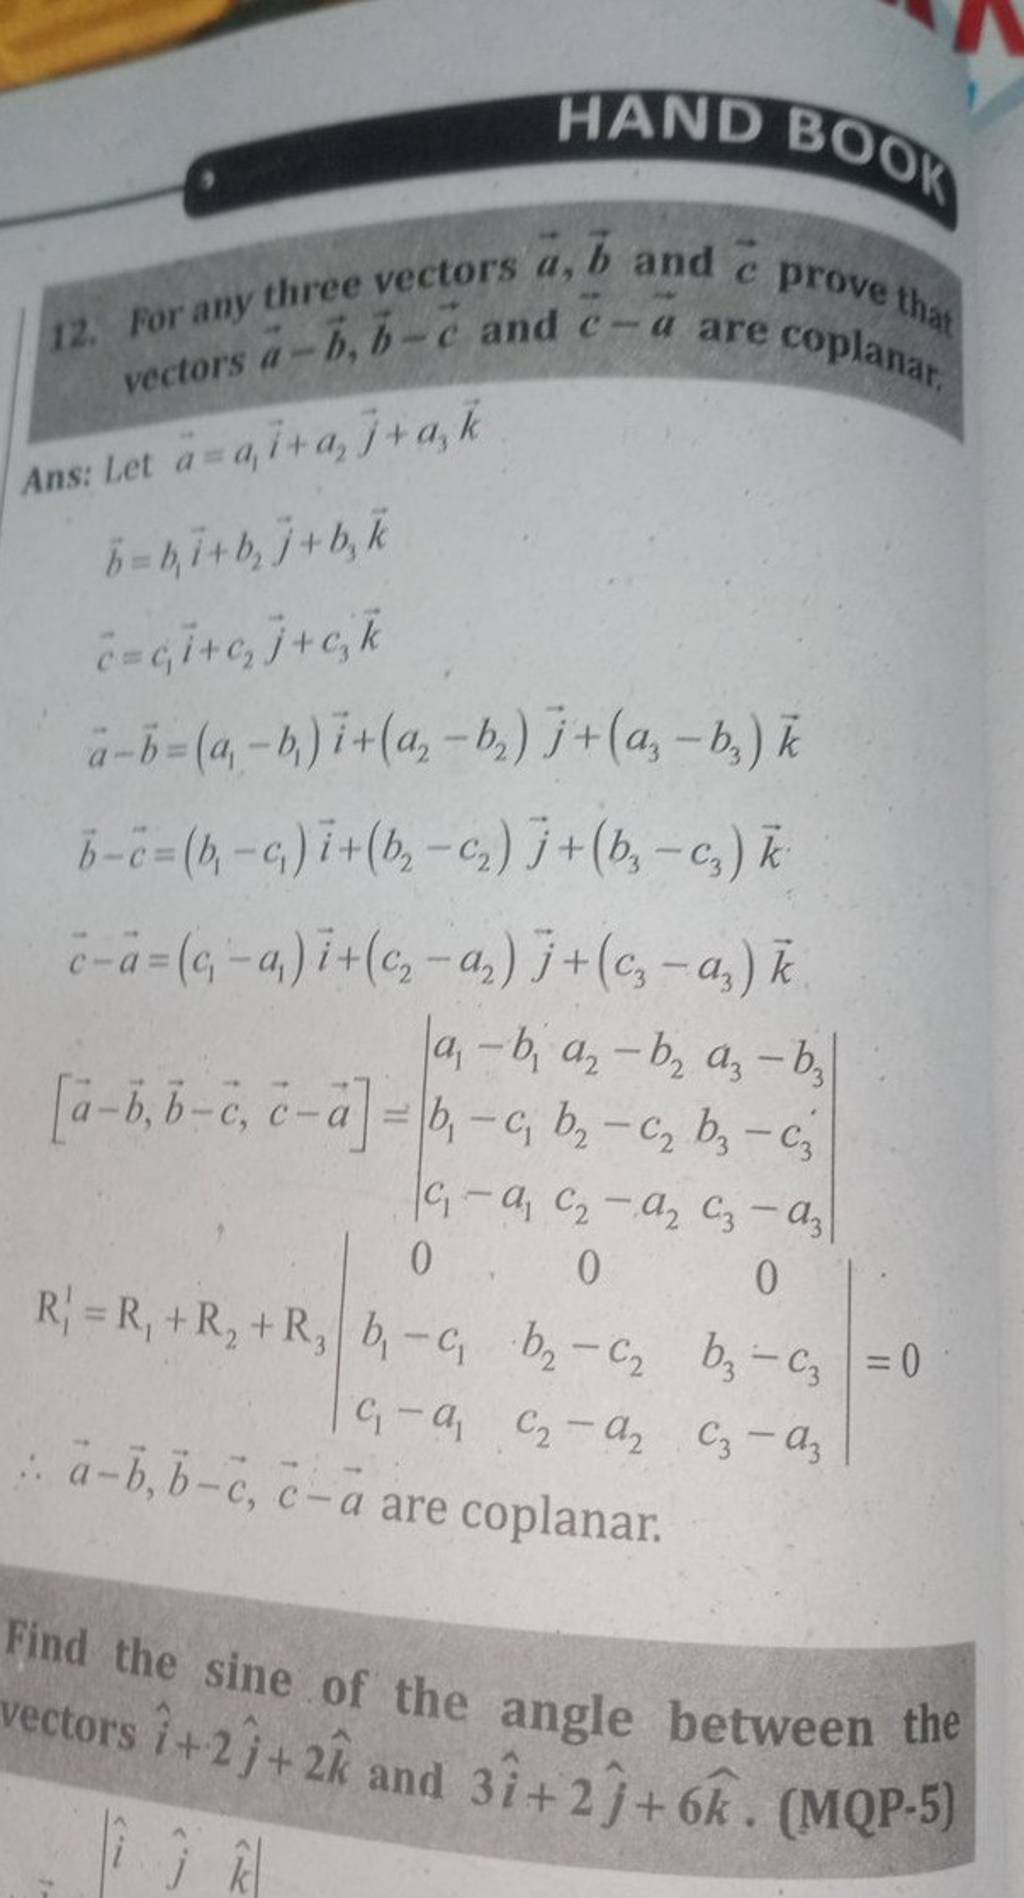 HAND BOOK
12. For any three vectors \vec{a}, \vec{b} and \vec{c} prove that
vectors \vec{a} - \vec{b}, \vec{b} - \vec{c} and \vec{c} - \vec{a} are coplanar.
Ans: Let \vec{a} = a_1 \vec{i} + a_2 \vec{j} + a_3 \vec{k}
\vec{b} = b_1 \vec{i} + b_2 \vec{j} + b_3 \vec{k}
\vec{c} = c_1 \vec{i} + c_2 \vec{j} + c_3 \vec{k}
\vec{a} - \vec{b} = (a_1 - b_1) \vec{i} + (a_2 - b_2) \vec{j} + (a_3 - b_3) \vec{k}
\vec{b} - \vec{c} = (b_1 - c_1) \vec{i} + (b_2 - c_2) \vec{j} + (b_3 - c_3) \vec{k}
\vec{c} - \vec{a} = (c_1 - a_1) \vec{i} + (c_2 - a_2) \vec{j} + (c_3 - a_3) \vec{k}
[\vec{a} - \vec{b}, \vec{b} - \vec{c}, \vec{c} - \vec{a}] = \begin{vmatrix} a_1 - b_1 & a_2 - b_2 & a_3 - b_3 \\ b_1 - c_1 & b_2 - c_2 & b_3 - c_3 \\ c_1 - a_1 & c_2 - a_2 & c_3 - a_3 \end{vmatrix}
R_1^1 = R_1 + R_2 + R_3 \begin{vmatrix} 0 & 0 & 0 \\ b_1 - c_1 & b_2 - c_2 & b_3 - c_3 \\ c_1 - a_1 & c_2 - a_2 & c_3 - a_3 \end{vmatrix} = 0
∴ \vec{a} - \vec{b}, \vec{b} - \vec{c}, \vec{c} - \vec{a} are coplanar.
Find the sine of the angle between the
vectors \hat{i} + 2\hat{j} + 2\hat{k} and 3\hat{i} + 2\hat{j} + 6\hat{k}. (MQP-5)
| \hat{i} \hat{j} \hat{k} |